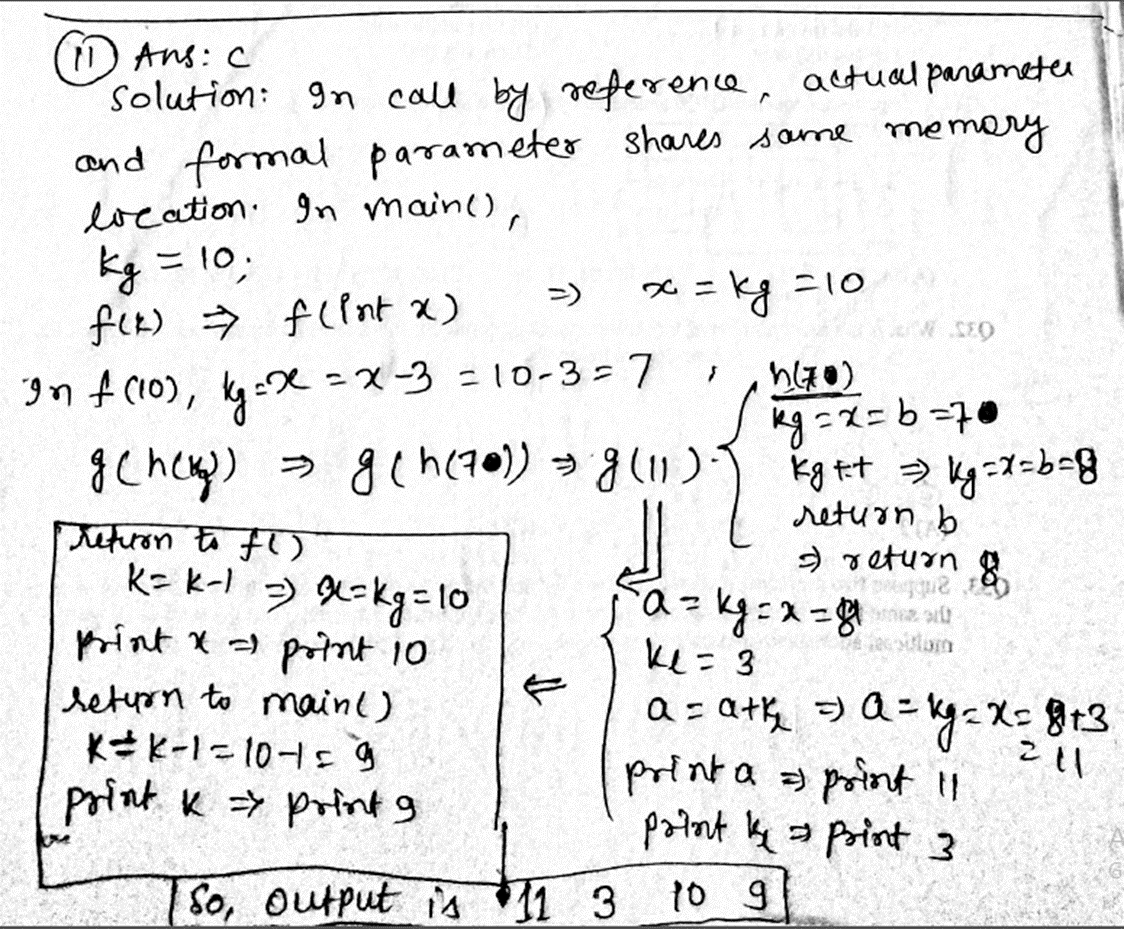 (11) Ans: C
Solution: In call by reference, actual parameter
and formal parameter shares same memory
location. In main(),
kg = 10;
f(k) ⇒ f(int x) ⇒ x = kg = 10
In f(10), kg = x = x-3 = 10-3 = 7,
g(h(kg)) ⇒ g(h(7)) ⇒ g(11).
h(7)
kg = x = b = 7
kg++ ⇒ kg = x = b = 8
return b
⇒ return 8
a = kg = x = 8
kl = 3
a = a+kl ⇒ a = kg = x = 8+3
= 11
print a ⇒ print 11
print kl ⇒ print 3
return to f()
k = k-1 ⇒ x = kg = 10
print x ⇒ print 10
return to main()
k = k-1 = 10-1 = 9
print k ⇒ print 9
So, output is 11 3 10 9